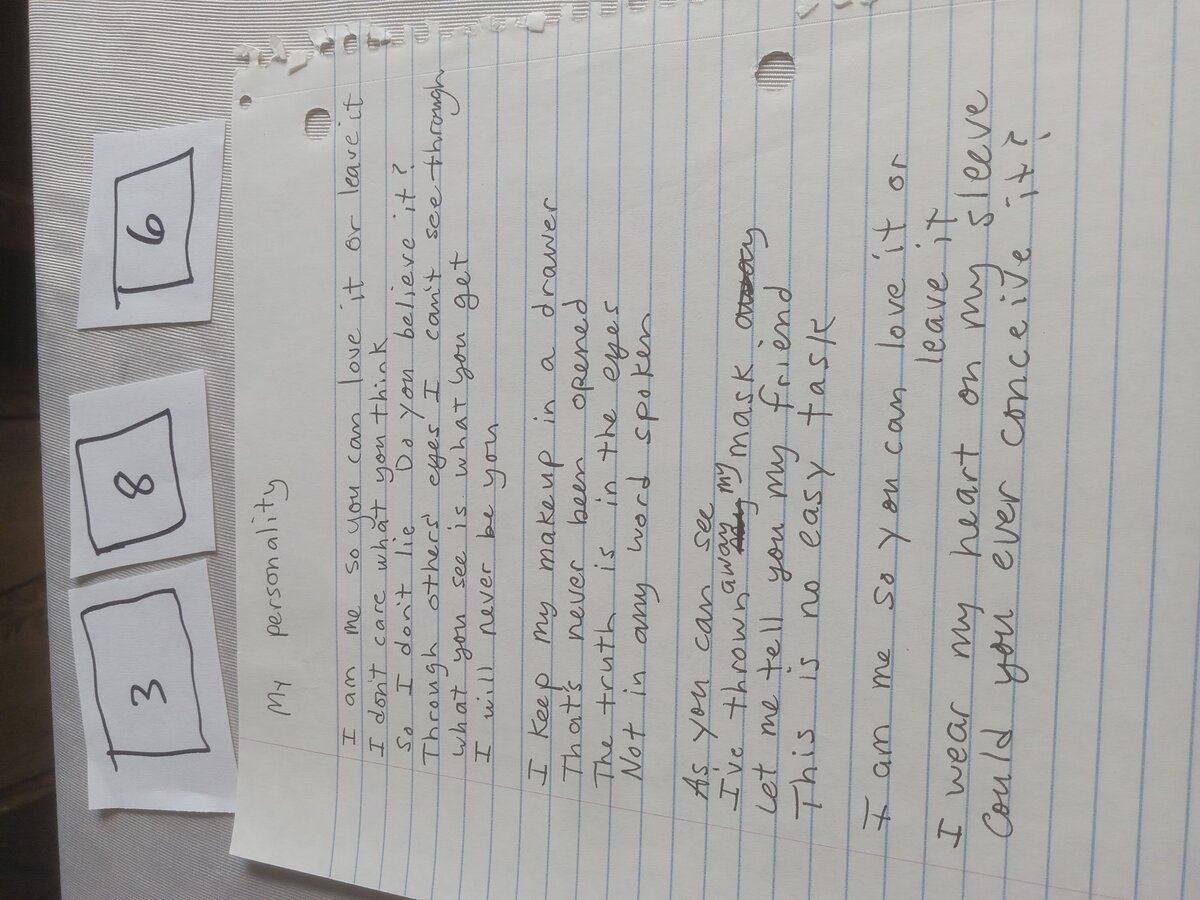 3 8 6
My personality
I am me so you can love it or leave it
I don't care what you think
So I don't lie Do you believe it?
Through others' eyes I can't see through
What you see is what you get
I will never be you
I keep my makeup in a drawer
That's never been opened
The truth is in the eyes
Not in any word spoken
As you can see
I've thrown away my mask
Let me tell you my friend
This is no easy task
I am me so you can love it or
leave it
I wear my heart on my sleeve
Could you ever conceive it?